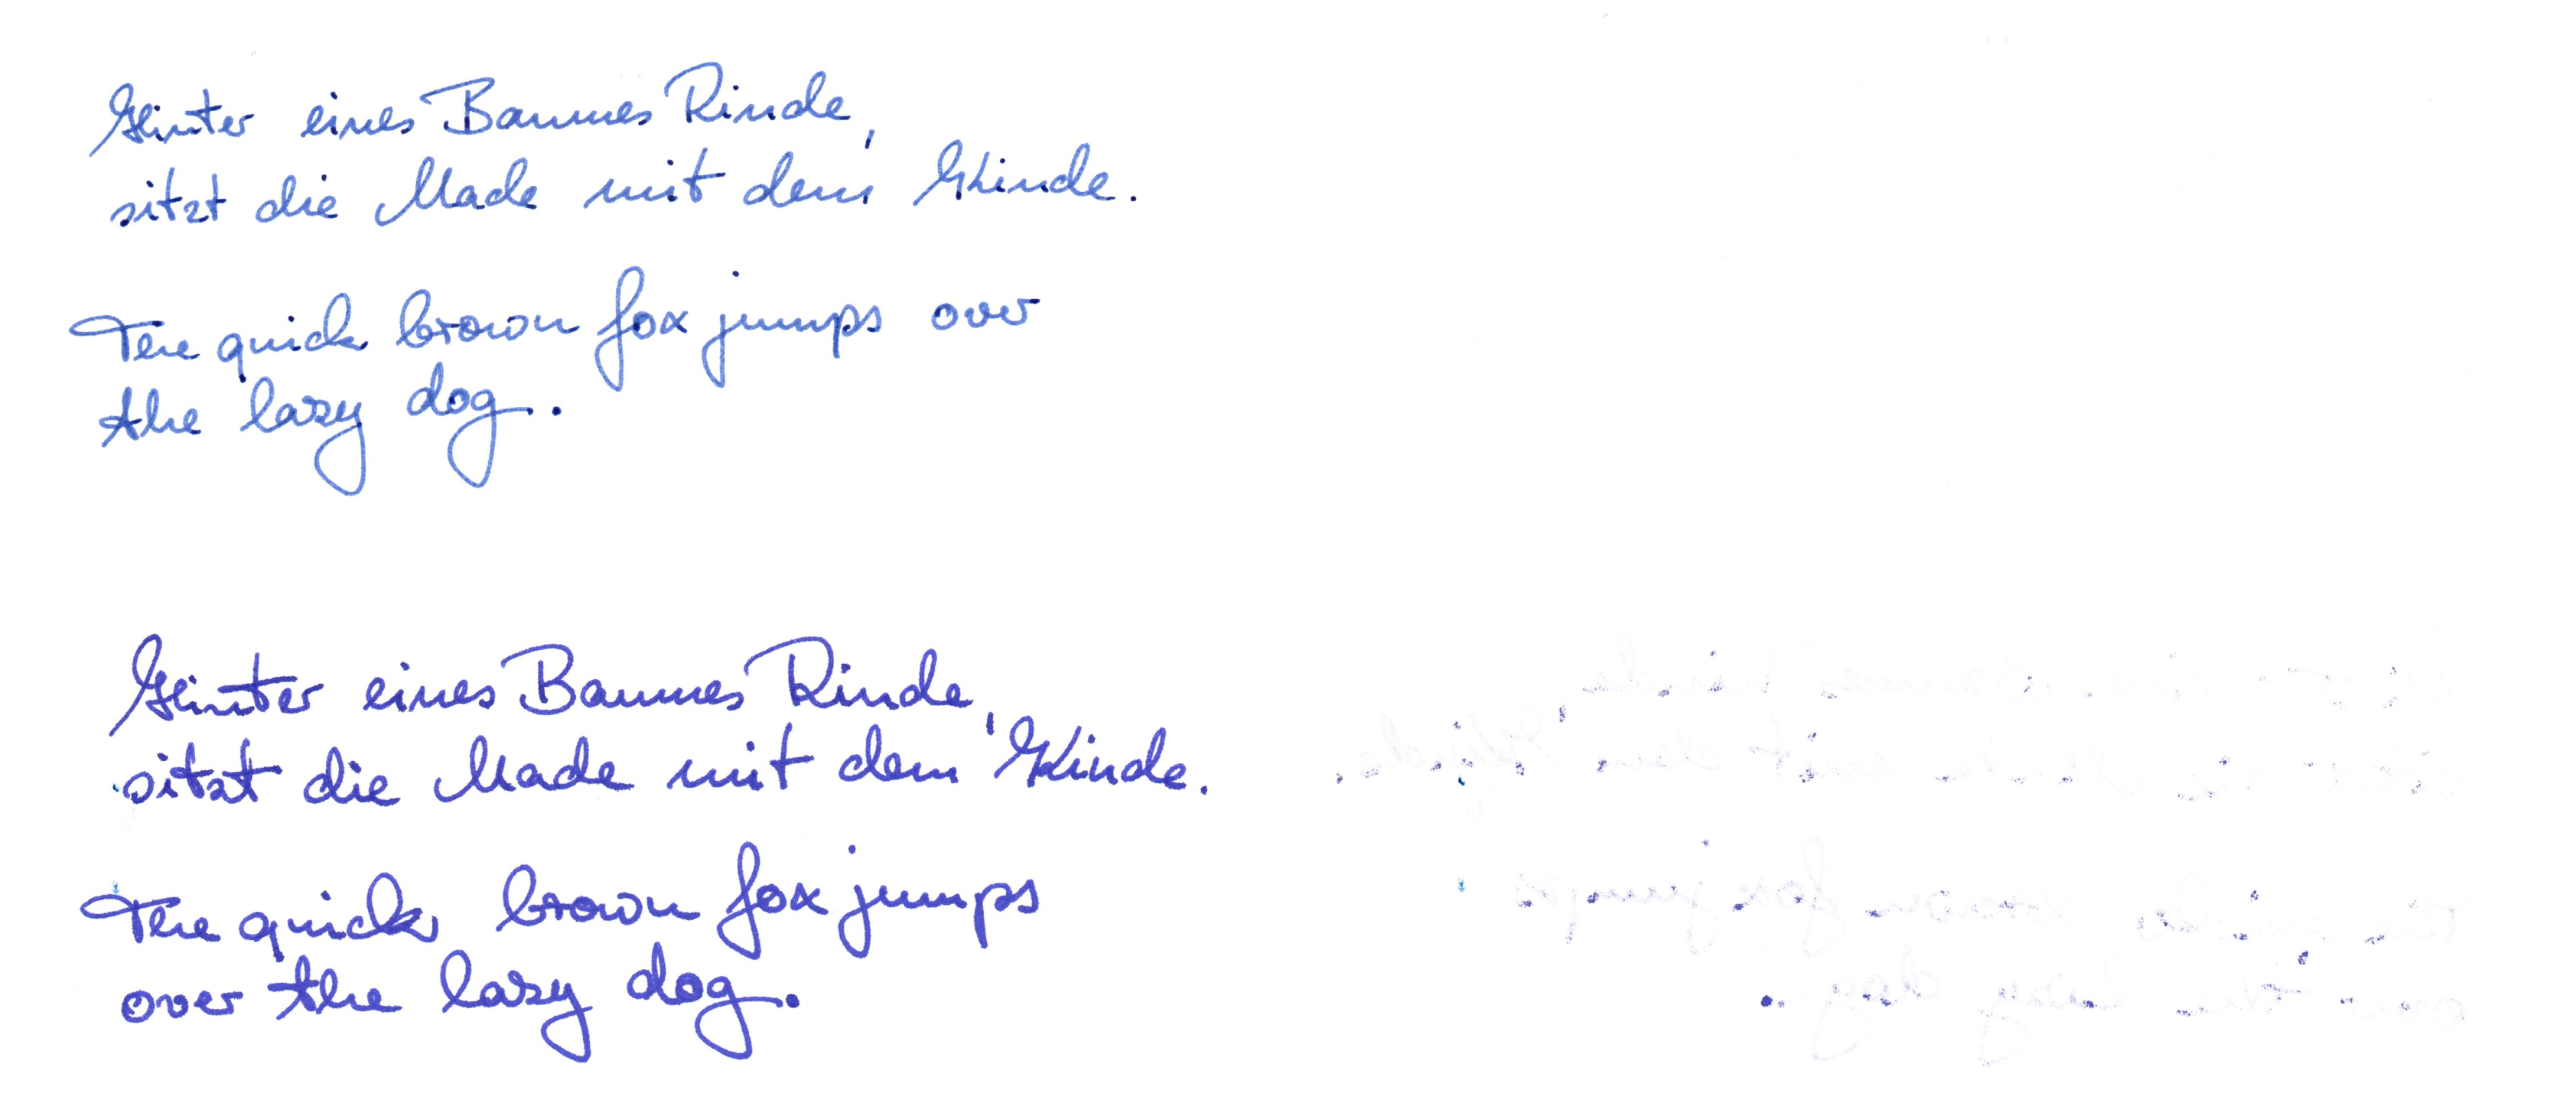 Hinter eines Baumes Rinde,
sitzt die Made mit dem Kinde.
The quick brown fox jumps over
the lazy dog..
Hinter eines Baumes Rinde,
sitzt die Made mit dem Kinde.
The quick brown fox jumps
over the lazy dog.